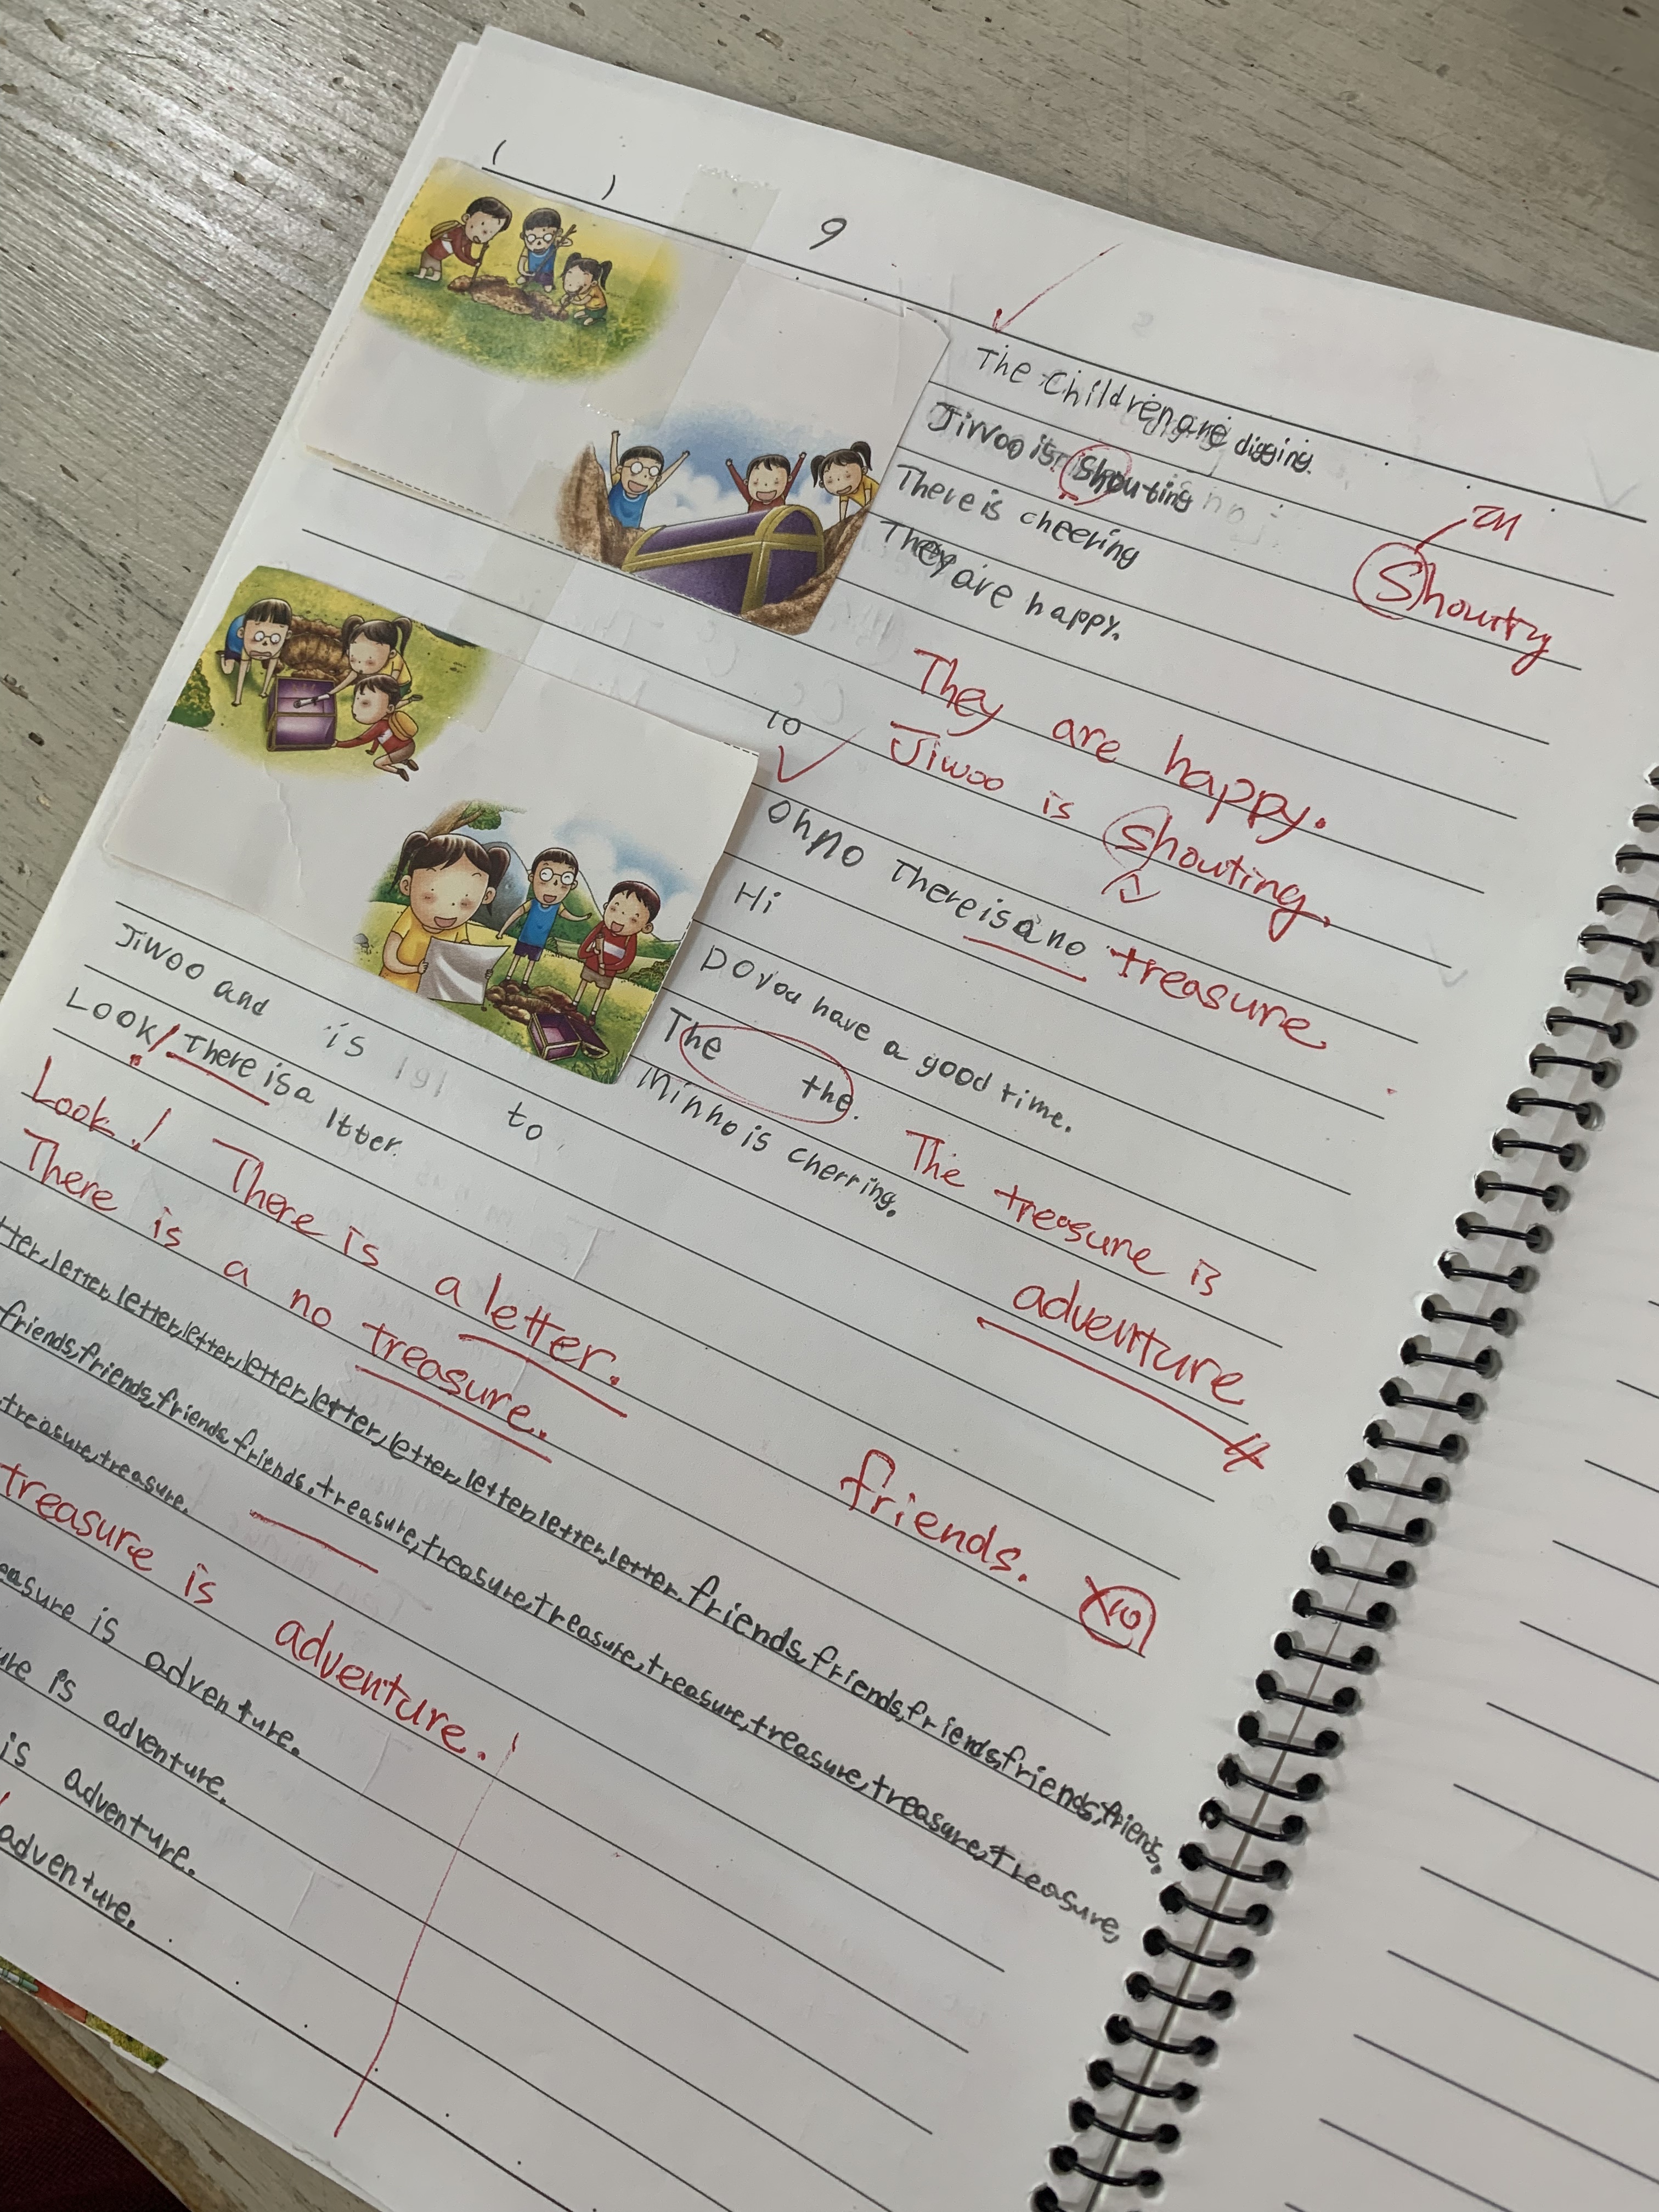 ( )
9
The Children are digging.
Jiwoo is Shouting
There is cheering
They are happy.
Shouting
They are happy.
Jiwoo is shouting.
10
Oh no There is a no treasure
Hi
Do you have a good time.
The the.
Minho is cherring.
The treasure is
adventure
Jiwoo and is to
Look! There is a ltter.
Look! There is a letter.
There is a no treasure.
friends. x10
letter, letter, letter, letter, letter, letter, letter, letter, letter, letter. friends, friends, friends, friends, friends.
friends, friends, friends, friends, treasure, treasure, treasure, treasure, treasure, treasure, treasure, treasure,
treasure, treasure.
treasure is adventure.
is adventure.
is adventure.
is adventure.
adventure.